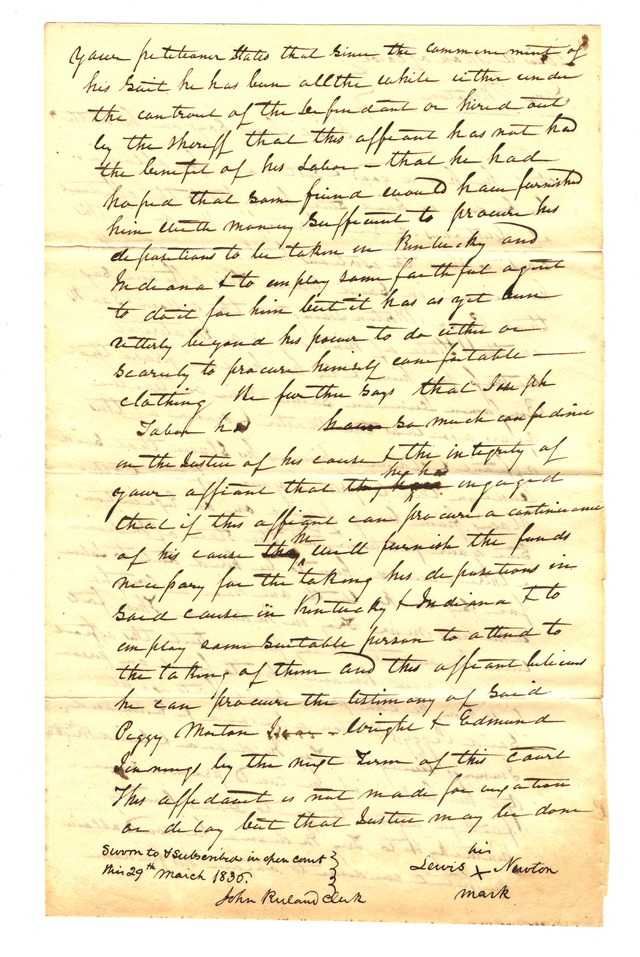 your petitioner States that Since the commencement of
his Suit he has been all the while either under
the controul of the Defendant or hired out
by the Sheriff that this affiant has not had
the benefit of his Labor – that he had
hoped that some friend would have furnished
him with money Sufficient to procure his
depositions to be taken in Kentucky and
Indiana & to employ some faithful agent
to do it for him but it has as yet been
utterly beyond his power to do either or
scarcely to procure himself comfortable –
clothing He further says that Joseph
Tabor has have so much confidence
in the Justice of his cause & the integrity of
he has
your affiant that they have engaged
that if this affiant can procure a continuance
of his cause they he will furnish the funds
necessary for the taking his depositions in
said cause in Kentucky & Indiana & to
employ some suitable person to attend to
the taking of them and this affiant believes
he can procure the testimony of said
Peggy Morton Isaac – Wright & Edmund
Jinnings by the next Term of this court
This affidavit is not made for vexation
or delay but that Justice may be done
Sworn to & Subscribed in open court
this 29th March 1836.
John Ruland Clerk
his
Lewis X Newton
mark